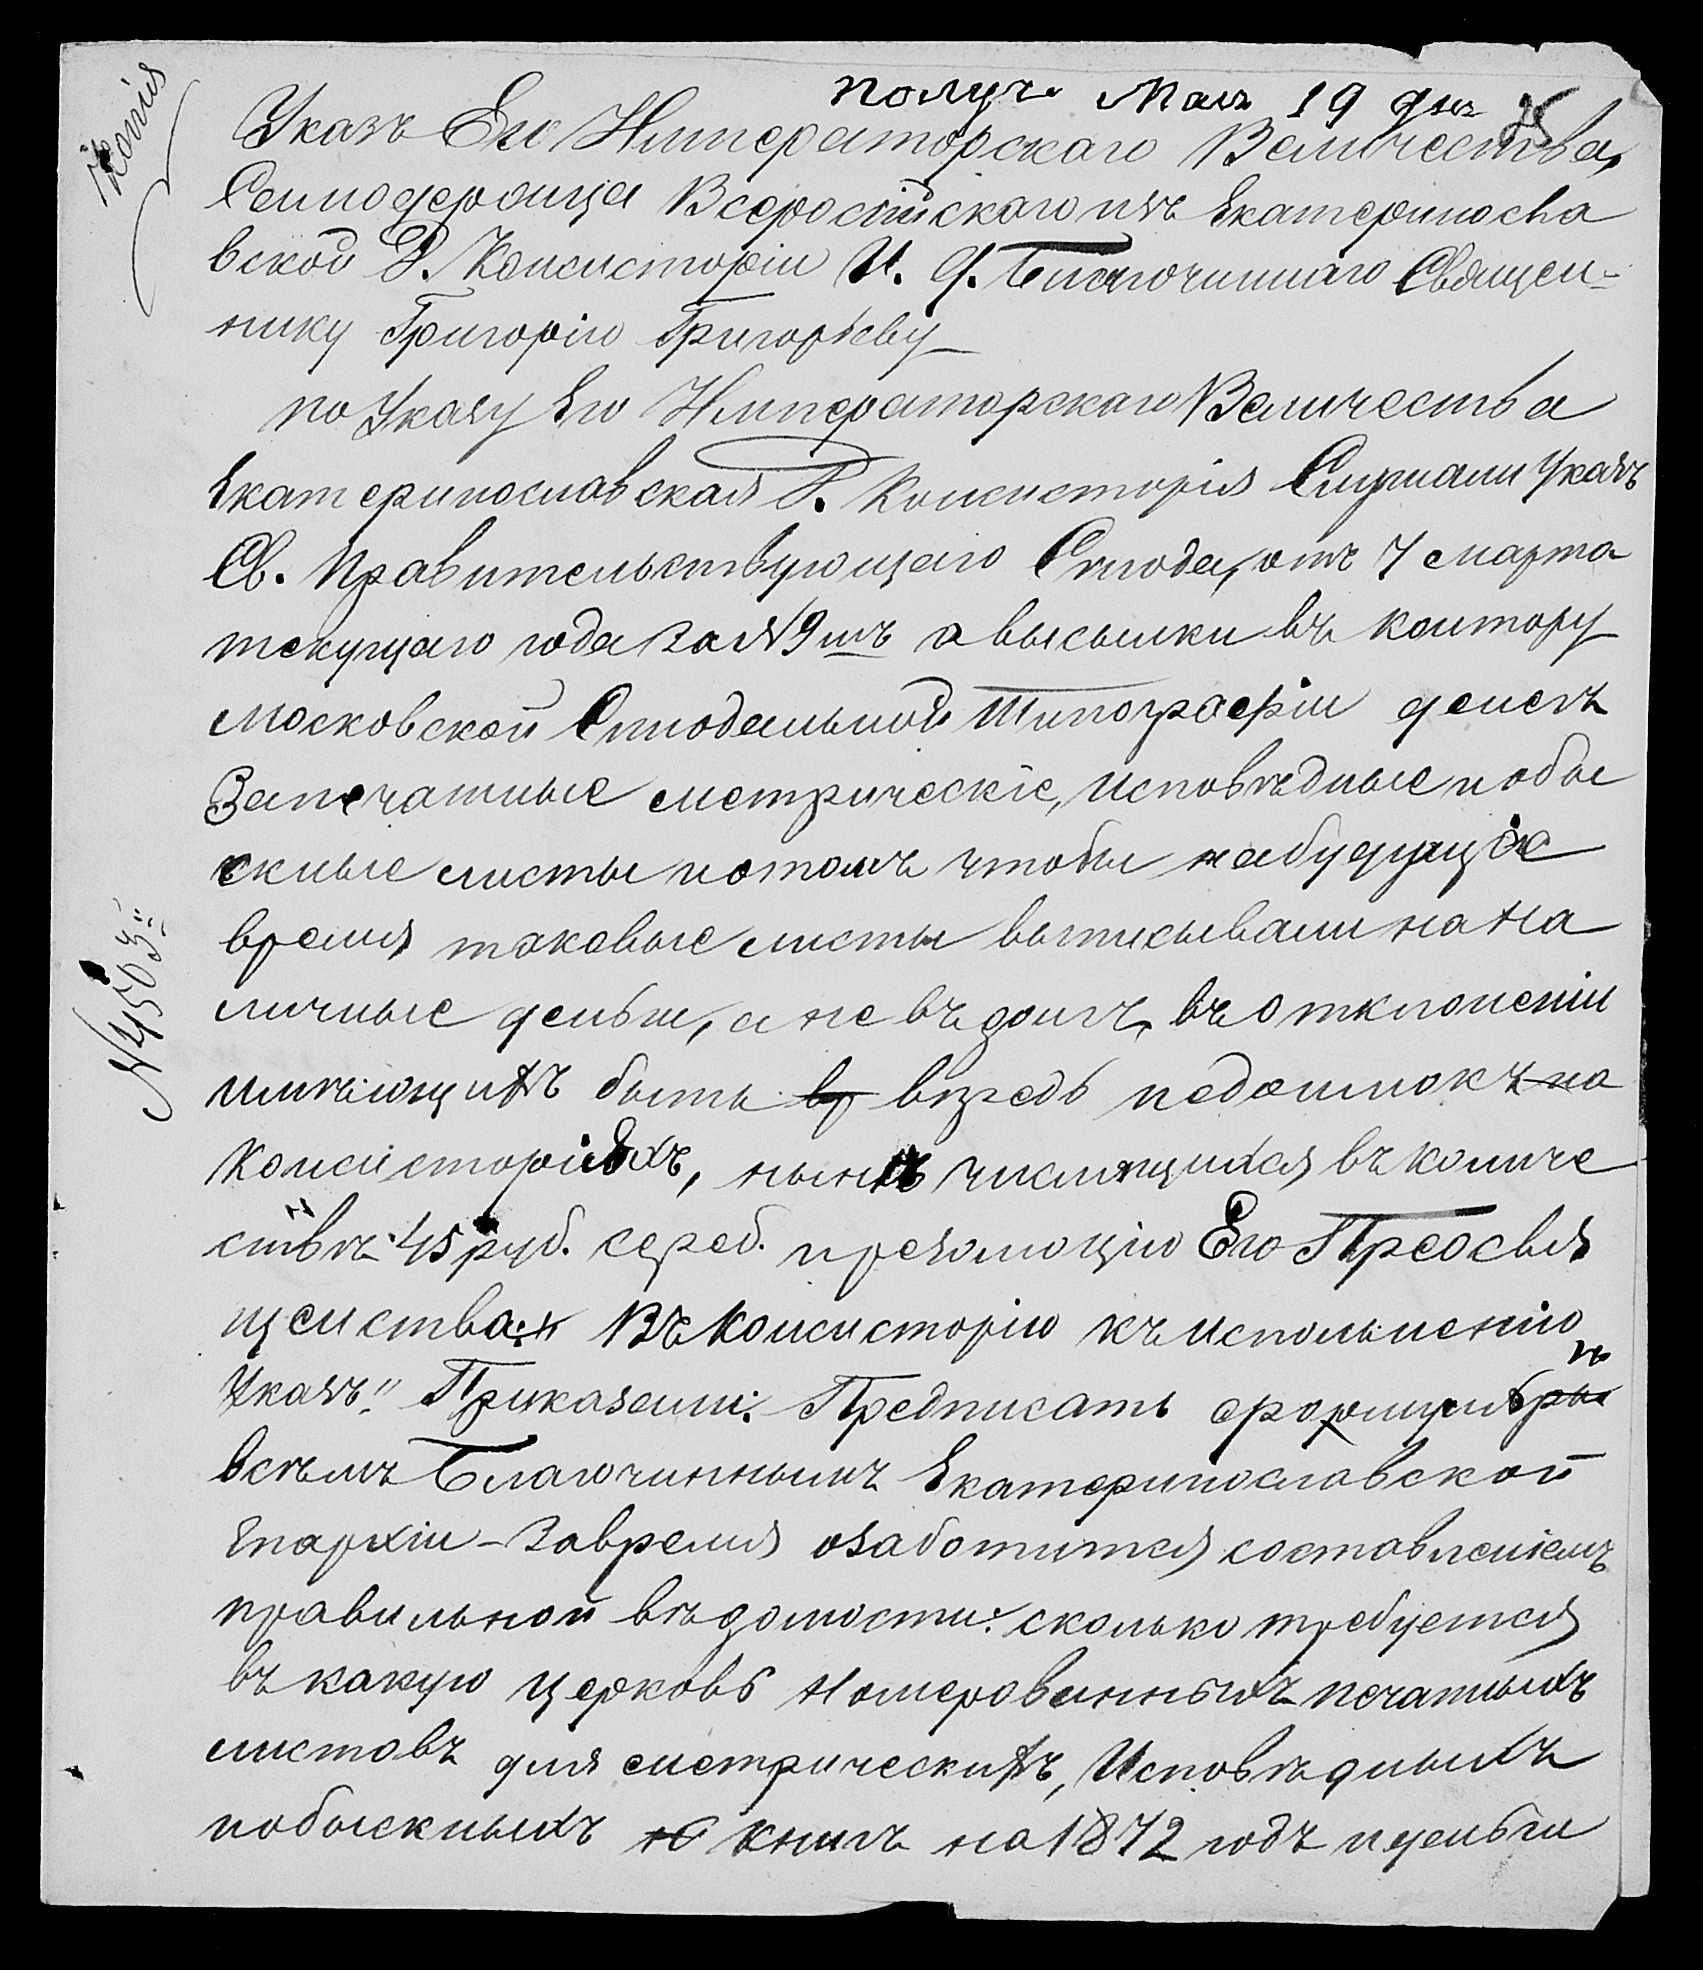 Копія
получ. Мая 19 дня
25
Указъ Его Императорскаго Величества,
Самодержца Всеросійскаго изъ Екатериносла
вской Д. Консисторіи И. Д. Благочиннаго Священ-
нику Григорію Григорьеву
по Указу Его Императорскаго Величества
Екатеринославская Д. Консисторія Слушали Указъ
Св. Правительствующаго Синода, отъ 7 марта
текущаго года за № 9мъ о высылки въ контору
московской Синодальной Типографіи денегъ
За печатные метрическіе, исповѣдные и обы
скные листы и о томъ чтобы на будущіе
время таковые листы выписывали на на
личные деньги, а не въ долгъ, въ отклоненіи
имѣющихъ быть вр впредь недоимокъ на
Консисторіяхъ, нынѣ числящихся въ количе
ствѣ 45 руб. сереб. и резолюцію Его Преосвя
щенства: „ Въ Консисторію къ исполненію
Указъ." Приказали: Предписать циркулярно
всѣмъ Благочиннымъ Екатеринославской
Епархіи – Заврéмя озаботится составленіемъ
правильной вѣдомости: сколько требуется
въ какую церковь номерованныхъ печатныхъ
листовъ для метрическихъ, Исповѣдныхъ
и обыскныхъ книгъ на 1872 годъ и деньги
№ 4503.